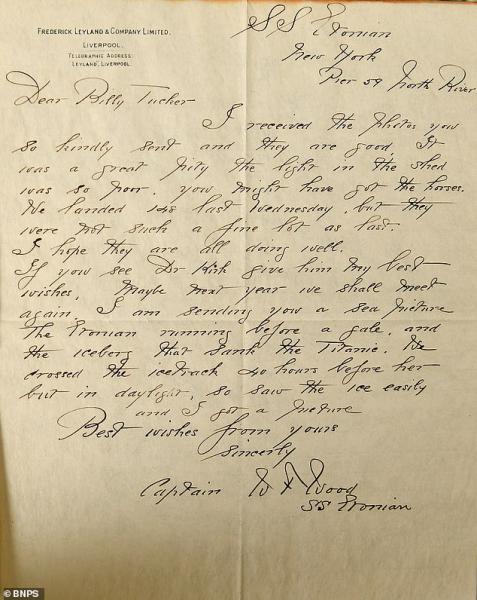 FREDERICK LEYLAND & COMPANY LIMITED.
LIVERPOOL.
TELEGRAPHIC ADDRESS:
LEYLAND, LIVERPOOL.
SS Etonian
New York
Pier 59 North River
Dear Billy Tucker
I received the photos you
so kindly sent and they are good. It
was a great pity the light in the shed
was so poor. you might have got the horses.
We landed 148 last Wednesday, but they
were not such a fine lot as last.
I hope they are all doing well.
If you see Dr Kirk give him my best
wishes. Maybe next year we shall meet
again. I am sending you a sea picture
The Etonian running before a gale, and
the iceberg that sank the Titanic. We
crossed the icetrack 40 hours before her
but in daylight, so saw the ice easily
and I got a picture
Best wishes from yours
sincerely
Captain W F Wood
SS Etonian
BNPS